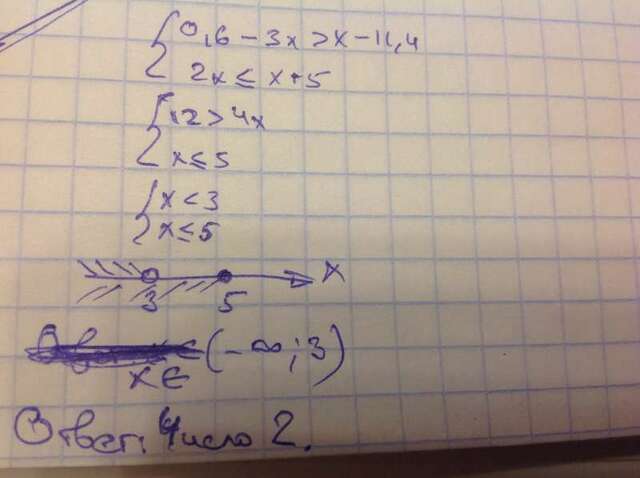 0,6 - 3x > x - 11,4
2x ≤ x + 5
12 > 4x
x ≤ 5
x < 3
x ≤ 5
x
3 5
(-∞; 3)
x ∈
Ответ: Число 2.